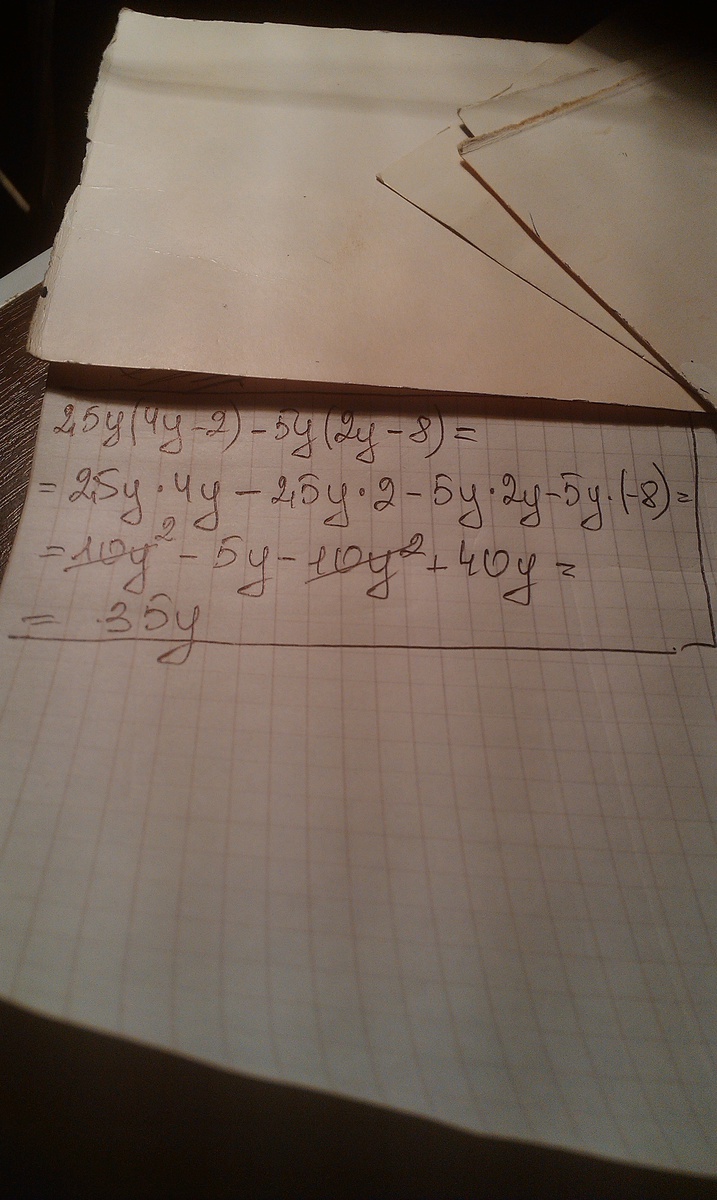 2,5y(4y-2)-5y(2y-8)=
=2,5y·4y-2,5y·2-5y·2y-5y·(-8)=
=10y²-5y-10y²+40y=
= 35y